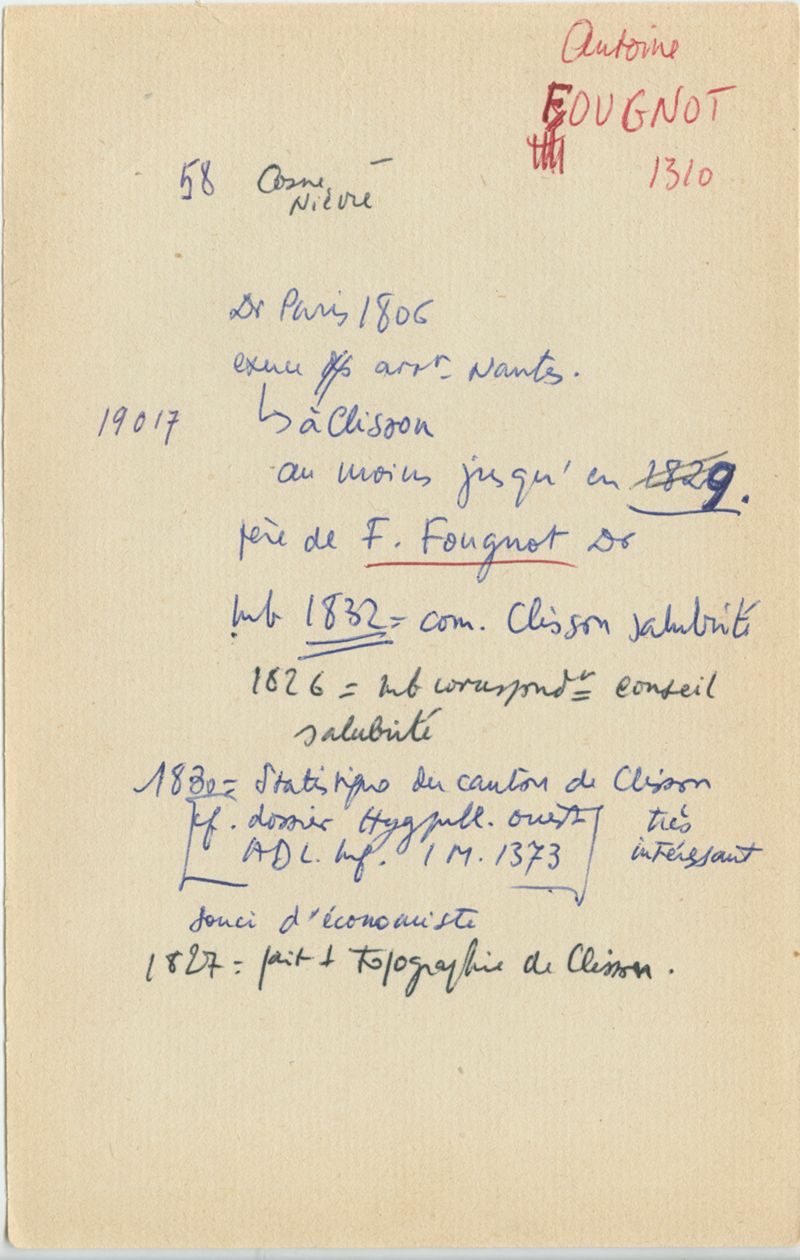 Antoine
FOUGNOT
1310
58 Cosne
Nièvre
Dr Paris 1806
exerce arrt Nantes.
19017 à Clisson
au moins jusqu'en 1829.
père de F. Fougnot Dr
mb 1832 = com. Clisson salubrité
1826 = mb correspondt = conseil
salubrité
1830 = Statistique du canton de Clisson
[cf. dossier Hyg publ. ouest] très
ADL. Inf. 1 M. 1373 intéressant
souci d'économiste
1827 = fait 1 topographie de Clisson.